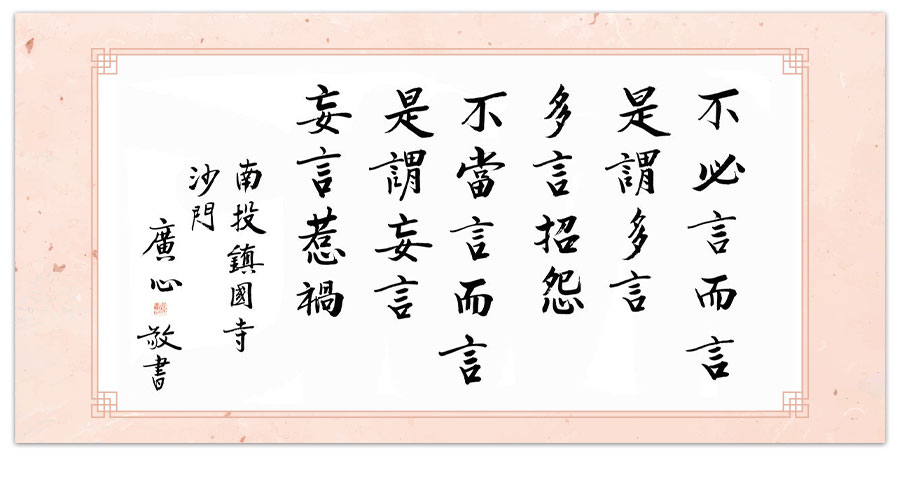 不必言而言
是謂多言
多言招怨
不當言而言
是謂妄言
妄言惹禍
南投鎮國寺
沙門
廣心
敬書